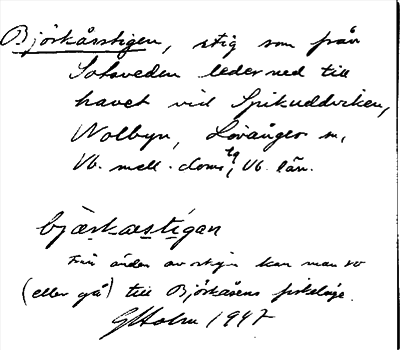 Björkåsstigen, stig som från
Sotaveden leder ned till
havet vid Spikuddviken,
Nolbyn, Lövånger sn,
Vb. mell. doms tg, Vb. län.
bjærkæstigan
Från änden av stigen kan man ro
(eller gå) till Björkåsens fiskeläge.
GHolm 1947